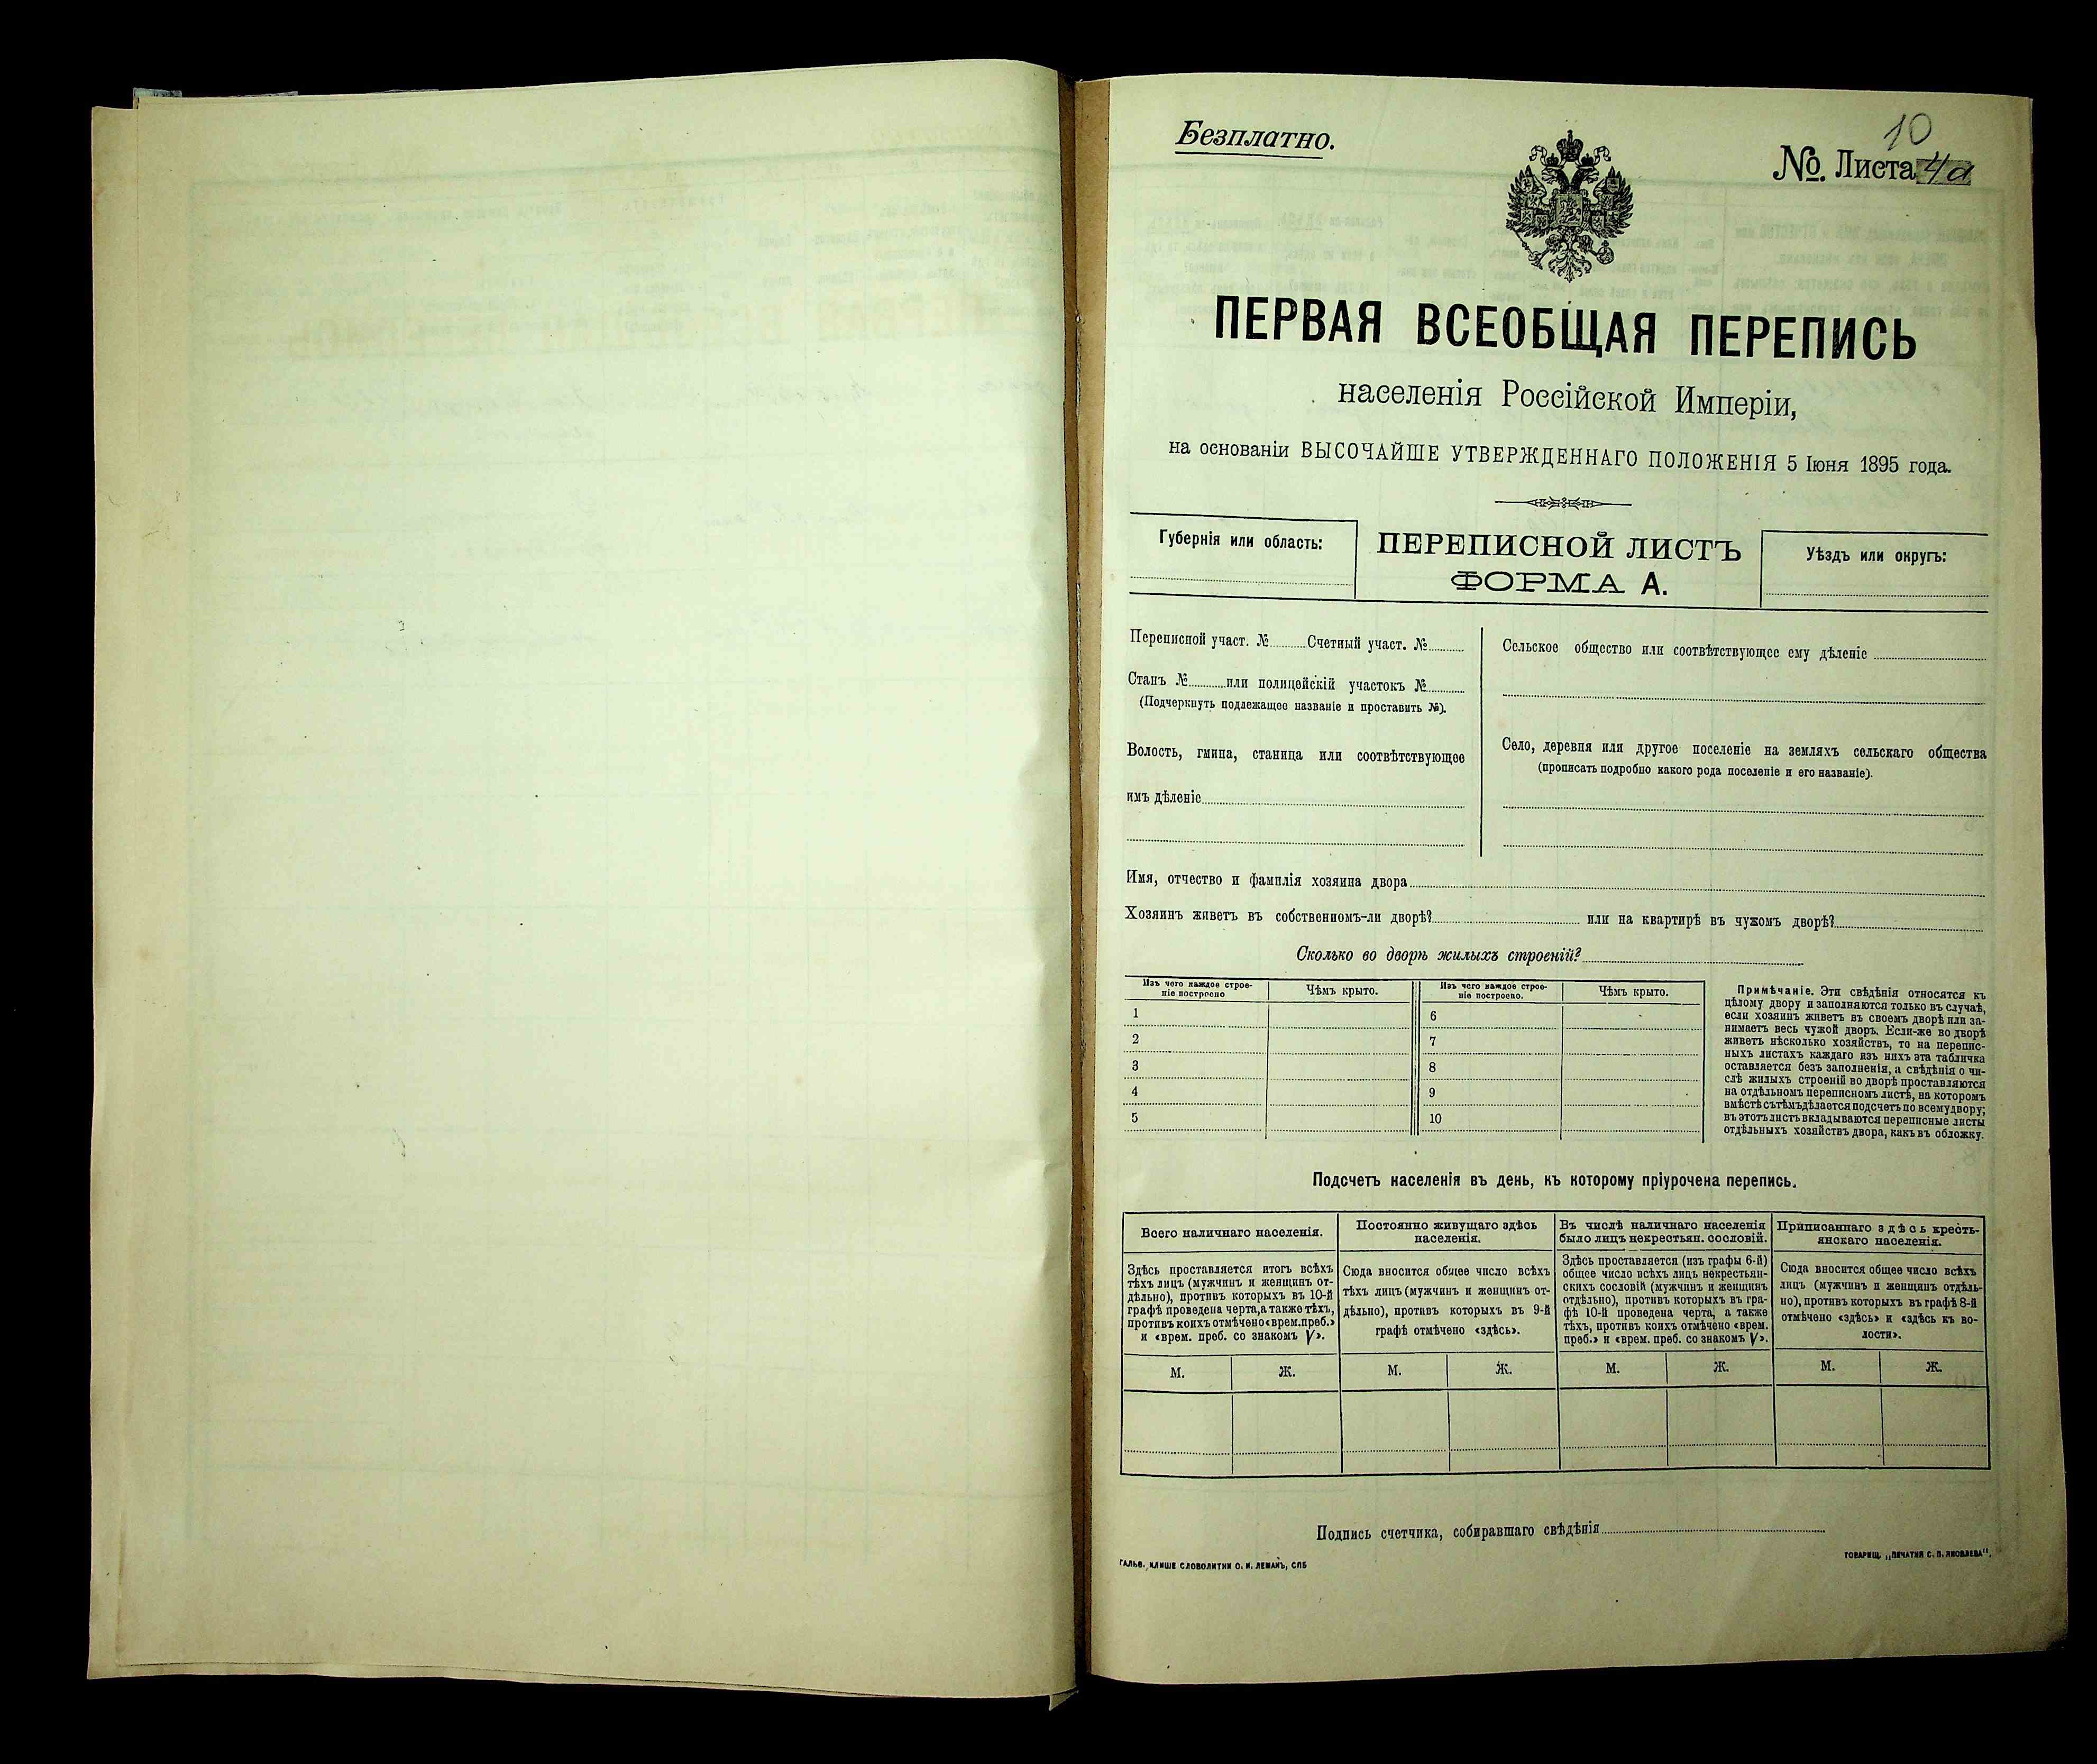 Безплатно.
10
№. Листа 4а
ПЕРВАЯ ВСЕОБЩАЯ ПЕРЕПИСЬ
населенія Россійской Имперіи,
на основаніи ВЫСОЧАЙШЕ УТВЕРЖДЕННАГО ПОЛОЖЕНІЯ 5 Іюня 1895 года.
Губернія или область:
ПЕРЕПИСНОЙ ЛИСТЪ
ФОРМА А.
Уѣздъ или округъ:
Переписной участ. № Счетный участ. №
Станъ № или полицейскій участокъ №
(Подчеркнуть подлежащее названіе и проставить №).
Волость, гмина, станица или соотвѣтствующее
имъ дѣленіе
Сельское общество или соотвѣтствующее ему дѣленіе
Село, деревня или другое поселеніе на земляхъ сельскаго общества
(прописать подробно какого рода поселеніе и его названіе).
Имя, отчество и фамилія хозяина двора
Хозяинъ живетъ въ собственномъ-ли дворѣ? или на квартирѣ въ чужомъ дворѣ?
Сколько во дворѣ жилыхъ строеній?
Изъ чего каждое строе-
ніе построено
Чѣмъ крыто.
Изъ чего каждое строе-
ніе построено.
Чѣмъ крыто.
1
6
2
7
3
8
4
9
5
10
Примѣчаніе. Эти свѣдѣнія относятся къ
цѣлому двору и заполняются только въ случаѣ,
если хозяинъ живетъ въ своемъ дворѣ или за-
нимаетъ весь чужой дворъ. Если-же во дворѣ
живетъ нѣсколько хозяйствъ, то на перепис-
ныхъ листахъ каждаго изъ нихъ эта табличка
оставляется безъ заполненія, а свѣдѣнія о чи-
слѣ жилыхъ строеній во дворѣ проставляются
на отдѣльномъ переписномъ листѣ, на которомъ
вмѣстѣ съ тѣмъ дѣлается подсчетъ по всему двору;
въ этотъ листъ вкладываются переписные листы
отдѣльныхъ хозяйствъ двора, какъ въ обложку.
Подсчетъ населенія въ день, къ которому пріурочена перепись.
Всего наличнаго населенія.
Здѣсь проставляется итогъ всѣхъ
тѣхъ лицъ (мужчинъ и женщинъ от-
дѣльно), противъ которыхъ въ 10-й
графѣ проведена черта, а также тѣхъ,
противъ коихъ отмѣчено «врем. преб.»
и «врем. преб. со знакомъ V».
Постоянно живущаго здѣсь
населенія.
Сюда вносится общее число всѣхъ
тѣхъ лицъ (мужчинъ и женщинъ от-
дѣльно), противъ которыхъ въ 9-й
графѣ отмѣчено «здѣсь».
Въ числѣ наличнаго населенія
было лицъ некрестьян. сословій.
Здѣсь проставляется (изъ графы 6-й)
общее число всѣхъ лицъ некрестьян-
скихъ сословій (мужчинъ и женщинъ
отдѣльно), противъ которыхъ въ гра-
фѣ 10-й проведена черта, а также
тѣхъ, противъ коихъ отмѣчено «врем.
преб.» и «врем. преб. со знакомъ V».
Приписаннаго здѣсь кресть-
янскаго населенія.
Сюда вносится общее число всѣхъ
лицъ (мужчинъ и женщинъ отдѣль-
но), противъ которыхъ въ графѣ 8-й
отмѣчено «здѣсь» и «здѣсь къ во-
лости».
М. Ж. М. Ж. М. Ж. М. Ж.
Подпись счетчика, собиравшаго свѣдѣнія
ГАЛЬВ. КЛИШЕ СЛОВОЛИТНИ О. И. ЛЕМАНЪ, СПБ
ТОВАРИЩ. „ПЕЧАТНЯ С. П. ЯКОВЛЕВА“.